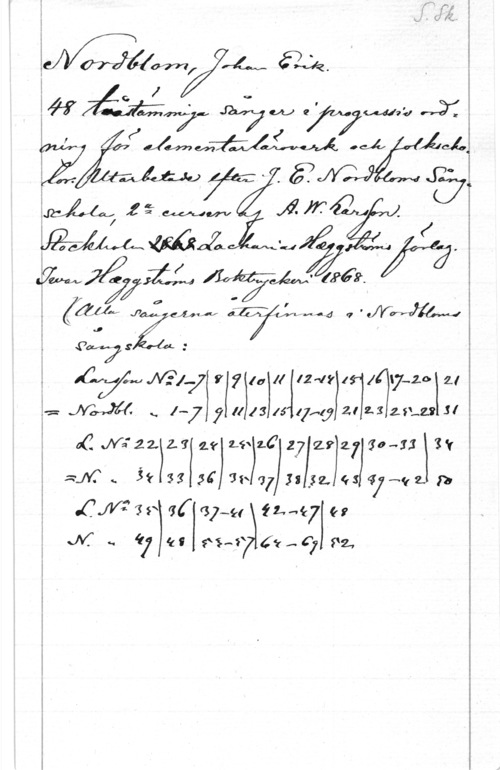 S. Sk
Nordblom, Johan Erik.
48 tvåstämmiga sånger i progressiv ord-
ning för elementarläroverk och folkscho-
lor. Utarbetade efter J. E. Nordbloms Sång-
schola, 2a cursen af A. W. Larsson.
Stockholm Zacharias Hæggströms förlag.
Iwar Hæggströms Boktryckeri 1868.
(Alla sångerna återfinnas i Nordbloms
sångskola:
Larsson No 1-7 | 8 | 9 | 10 | 11 | 12-14 | 15 | 16 | 17-20 | 21
= Nordbl. " 1-7 | 9 | 11 | 13 | 15 | 17-19 | 21 | 23 | 25-28 | 31
L. No 22 | 23 | 24 | 25 | 26 | 27 | 28 | 29 | 30-33 | 34
= N. " 34 | 33 | 36 | 35 | 37 | 38 | 32 | 43 | 39-42 | 50
L. No 35 | 36 | 37-41 | 42-47 | 48
N. " 49 | 48 | 53-57 | 64-69 | 52